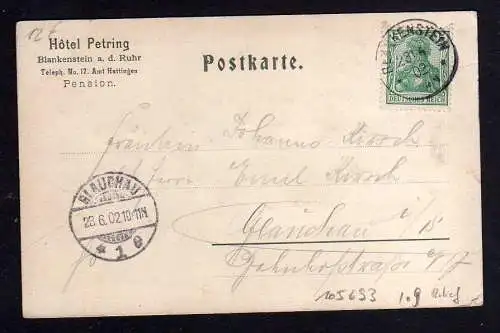 12€
Hôtel Petring
Blankenstein a. d. Ruhr
Teleph. No. 17. Amt Hattingen
Pension.
Postkarte.
BLANKENSTEIN
DEUTSCHES REICH
Fräulein Johanna Kirsch
Herrn Emil Kirsch
Glauchau i/S
Bahnhofstraße
GLAUCHAU
23.6.02.10-11N
* 1 e
105693